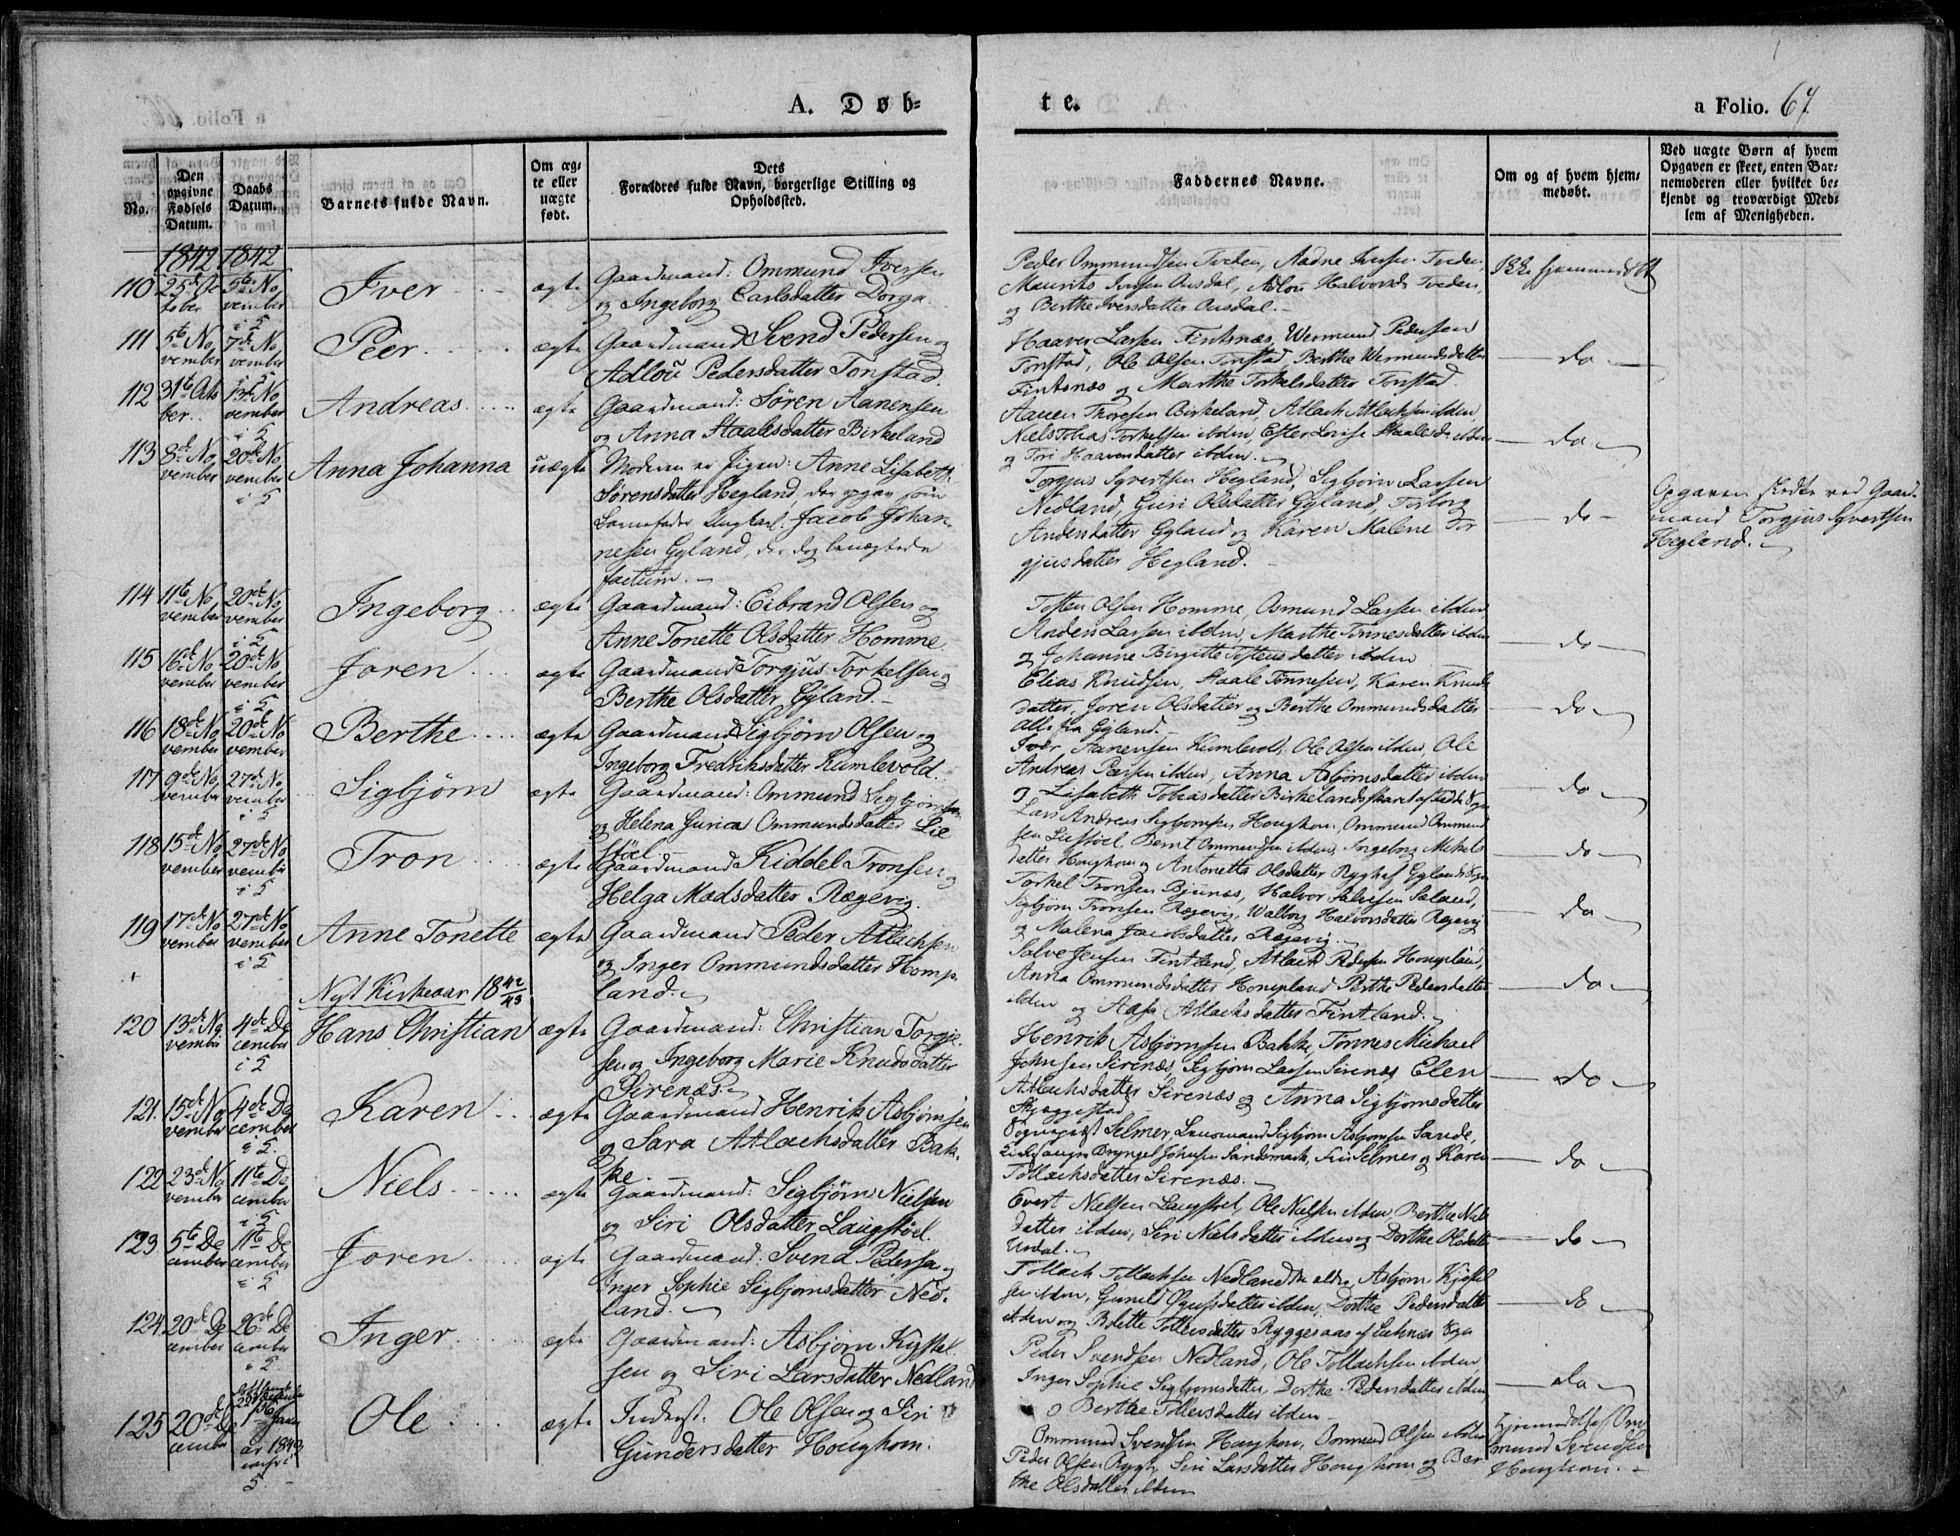 A. Døb-
te.
a Folio. 67.
No.
Den
opgivne
Fødsels
Datum.
Daabs
Datum.
Barnets fulde Navn.
Om æg-
te eller
uægte
født.
Dets
Forældres fulde Navn, borgerlige Stilling og
Opholdssted.
Faddernes Navne.
Om og af hvem hjem-
medøbt.
Ved uægte Børn af hvem
Opgaven er skeet, enten Bar-
nemoderen eller hvilket be-
kjendt og troværdigt Med-
lem af Menigheden.
1842 1842
110 25de Oc
tober
5te No
vember
i 5
Iver
ægte
Gaardmand: Ommund Iversen
og Ingeborg Carlsdatter Dorga.
Peder Ommundsen Tveden, Aadne Iversen Tveden,
Maurits Iversen Ousdal, Adlou Halvorsd. Tveden,
og Berthe Iversdatter Ousdal.
Ikke hjemmedøbt
111 5te No
vember
7de No
vember
Peer
ægte
Gaardmand Svend Pedersen og
Adlou Pedersdatter Tonstad.
Haaver Larsen Fintsnæs, Wermund Pedersen
Tonstad, Ole Olsen Tonstad Berthe Wermundsdatter
Fintsnæs og Marthe Torkelsdatter Tonstad.
do
112 31te Octo
ber
13de No
vember
i 5
Andreas
ægte
Gaardmand: Søren Aanensen
og Anna Staalesdatter Birkeland
Aanen Thoresen Birkeland, Atlach Atlachsen ibden
Niels Tobias Torkelsen ibden, Ester Lovise Staalesd. ibden
og Tori Haavensdatter ibden.
do
113 8de No
vember
20de No
vember
i 5
Anna Johanna
uægte
Moderen er Pigen: Anne Lisabeth
Sørensdatter Hegland, der opgav som
Barnefader Ungkarl. Jacob Johan-
nesen Gyland, der dog benægtede
factum.
Torgjus Syvertsen Hegland, Sigbjørn Larsen
Nedland, Guri Olsdatter Gyland, Torborg
Andersdatter Gyland og Karen Malene Tor
gjusdatter Hegland.
do
Opgaven skedte ved Gaard-
mand Torgjus Syvertsen
Hegland.
114 11te No
vember
20de No
vember
i 5
Ingeborg
ægte
Gaardmand: Eibrand Olsen og
Anne Tonette Olsdatter Homme.
Tosten Olsen Homme, Osmund Larsen ibden,
Anders Larsen ibden, Marthe Tønnesdatter ibden
og Johanne Birgitte Tostensdatter ibden
do
115 16de No
vember
20de No
vember
i 5
Joren
ægte
Gaardmand Torgjus Torkelsen og
Berthe Olsdatter Gyland.
Elias Knudsen, Staale Tønnesen, Karen Knuds
datter, Joren Olsdatter og Berthe Ommundsdatter
alle fra Gyland.
do
116 18de No
vember
20de No
vember
Berthe
ægte
Gaardmand Sigbjørn Olsen og
Ingeborg Fredriksdatter Kumlevold.
Iver Aanensen Kumlevold, Ole Olsen ibden, Ole
Andreas Pæersen ibden, Anna Asbjørnsdatter ibden
og Lisabeth Tobiasdatter Birkeland
do
117 9de No
vember
27de No
vember
i 5
Sigbjørn
ægte
Gaardmand: Ommund Sigbjørnsen
og Helena Gurica Ommundsdatter Lie
støel
Lars Andreas Sigbjørnsen Houghom, Ommund Ommund
sen Liestøel Bernt Ommundsen ibden, Ingeborg Mikels
datter Houghom og Antonetta Olsdatter
do
118 15de No
vember
27de No
vember
i 5
Tron
ægte
Gaardmand Kiddel Tronsen og
Helga Madsdatter Rægevig.
Torkel Tronsen Bjunæs, Halvor Salvesen
Sigbjørn Tronsen Rægevig, Walborg Halvorsdatter Rægevig
og Malena Jacobsdatter Rægevig.
do
119 17de No
vember
27de No
vember
i 5
Anne Tonette
ægte
Gaardmand Peder Atlachsen
og Inger Ommundsdatter Homp-
land.
Salve Jensen Fintland, Atlach Pedersen Hompland,
Anna Ommundsdatter Hompland Berthe Pedersdatter
ibden og Aasa Atlachsdatter Fintland.
do
Nyt Kirkeaar 1842/43
120 13de No
vember
4de De
cember
i 5
Hans Christian
ægte
Gaardmand: Christian Torgje-
sen og Ingeborg Marie Knudsdatter
Sirenæs.
Henrik Asbjørnsen Bakke, Tønnes Michael
Johnsen Sirenæs, Sigbjørn Larsen Sirenæs Elen
Atlachsdatter Sirenæs og Anna Sigbjørnsdatter
Skjeggestad
do
121. 15de No
vember
4de De
cember
i 5.
Karen
ægte
Gaardmand Henrik Asbjørnsen
og Sara Atlachsdatter Bak-
ke.
Sognepræst Selmer, Lensmand Sigbjørn Asbjørnsen Sande,
Kirkesanger Bryngel Johnsen Sandsmark, Fru Selmer og Karen
Tollachsdatter Sirenæs.
do
122 23de No
vember
11te De
cember
i 5
Niels
ægte
Gaardmand: Sigbjørn Nielsen
og Siri Olsdatter Laugstøel.
Evert Nielsen Laugstøel, Ole Nielsen ibden, Berthe Niels
datter ibden, Siri Nielsdatter ibden og Dorthe Olsdatter
Urdal.
do
123 5te De
cember
11te De
cember
i 5
Joren
ægte
Gaardmand: Svend Pedersen og
Inger Sophie Sigbjørnsdatter Ned-
land.
Tollach Tollachsen Nedland den ældre, Asbjørn Kjøstel
sen ibden, Gunild ibden, Dorthe Pedersdatter
ibden og Bolette Tollersdatter Ryggesaas
do
124. 20de De
cember
26de De
cember
i 5
Inger
ægte
Gaardmand: Asbjørn Kjøstel-
sen og Siri Larsdatter Nedland
Peder Svendsen Nedland, Ole Tollachsen ibden
Inger Sophie Sigbjørnsdatter, Dorthe Pedersdatter ibden,
og Berthe Tollersdatter ibden.
do
125 20de De
cember
1ste Janu
ar 1843
5.
Ole
ægte
Inderst: Ole Olsen og Siri
Gundersdatter Houghom.
Ommund Svendsen Houghom, Ommund Olsen ibden
Peder Olsen Siri Larsdatter Houghom og Ber
the Olsdatter ibden
Hjemmedøbt af Om
mund Svendsen
Houghom.